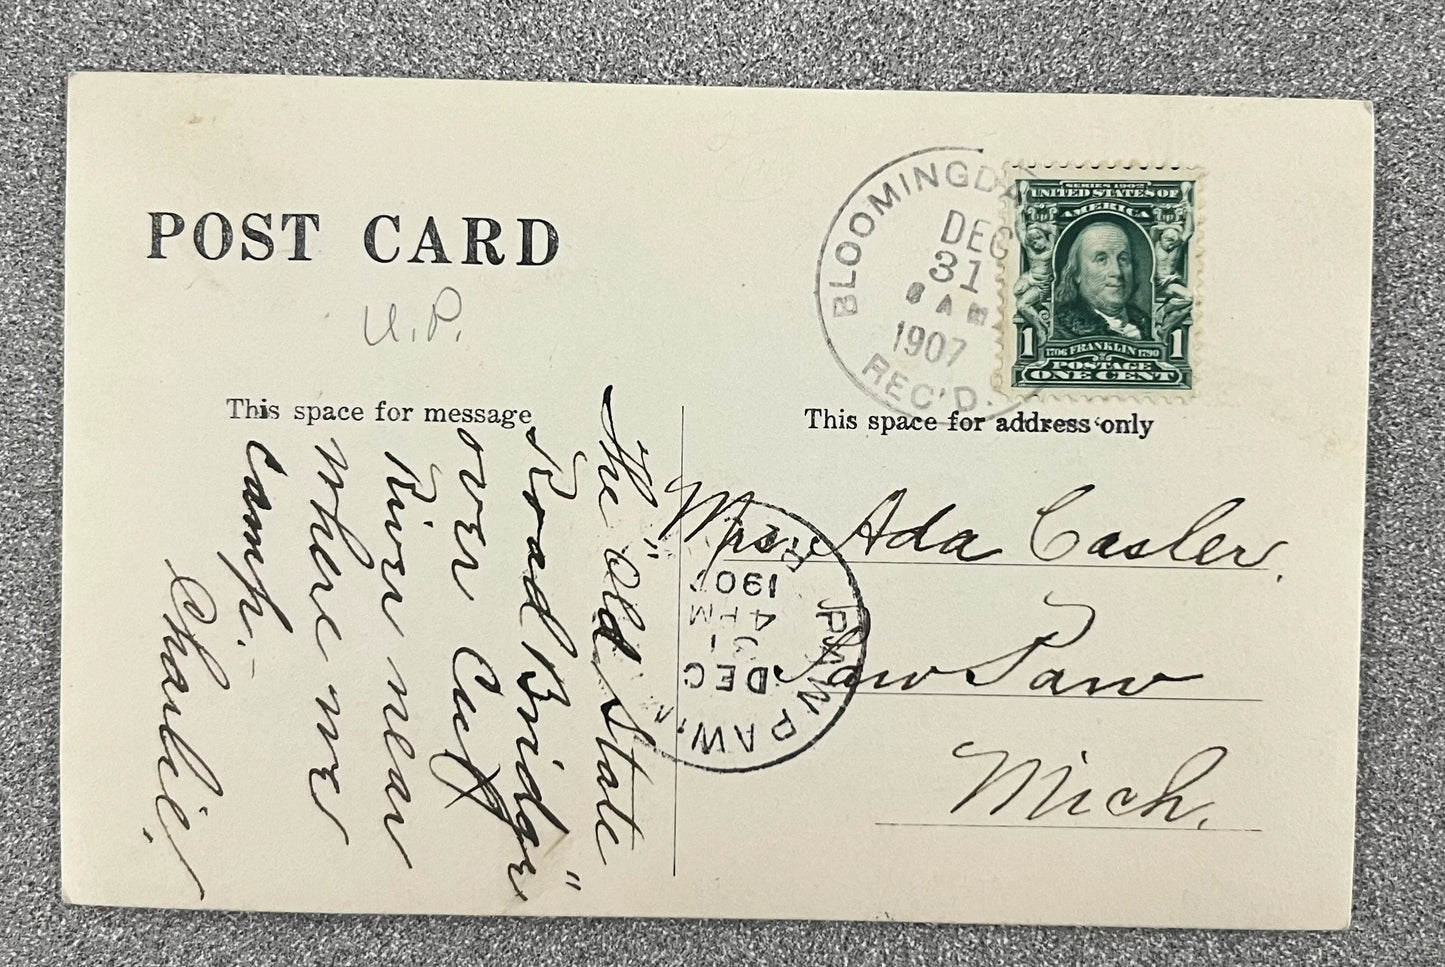 POST CARD
U.P.
This space for message
The "Old State
Road Bridge"
over
River near
where we
camp.-
Charlie.
BLOOMINGDA
DEC
31
8 AM
1907
REC'D.
SERIES 1902
UNITED STATES OF
AMERICA
1
1706 FRANKLIN 1790
1
POSTAGE
ONE CENT
This space for address only
Mrs. Ada Casler.
Paw Paw
Mich.
PAW PAW
DEC
31
4 PM
1907